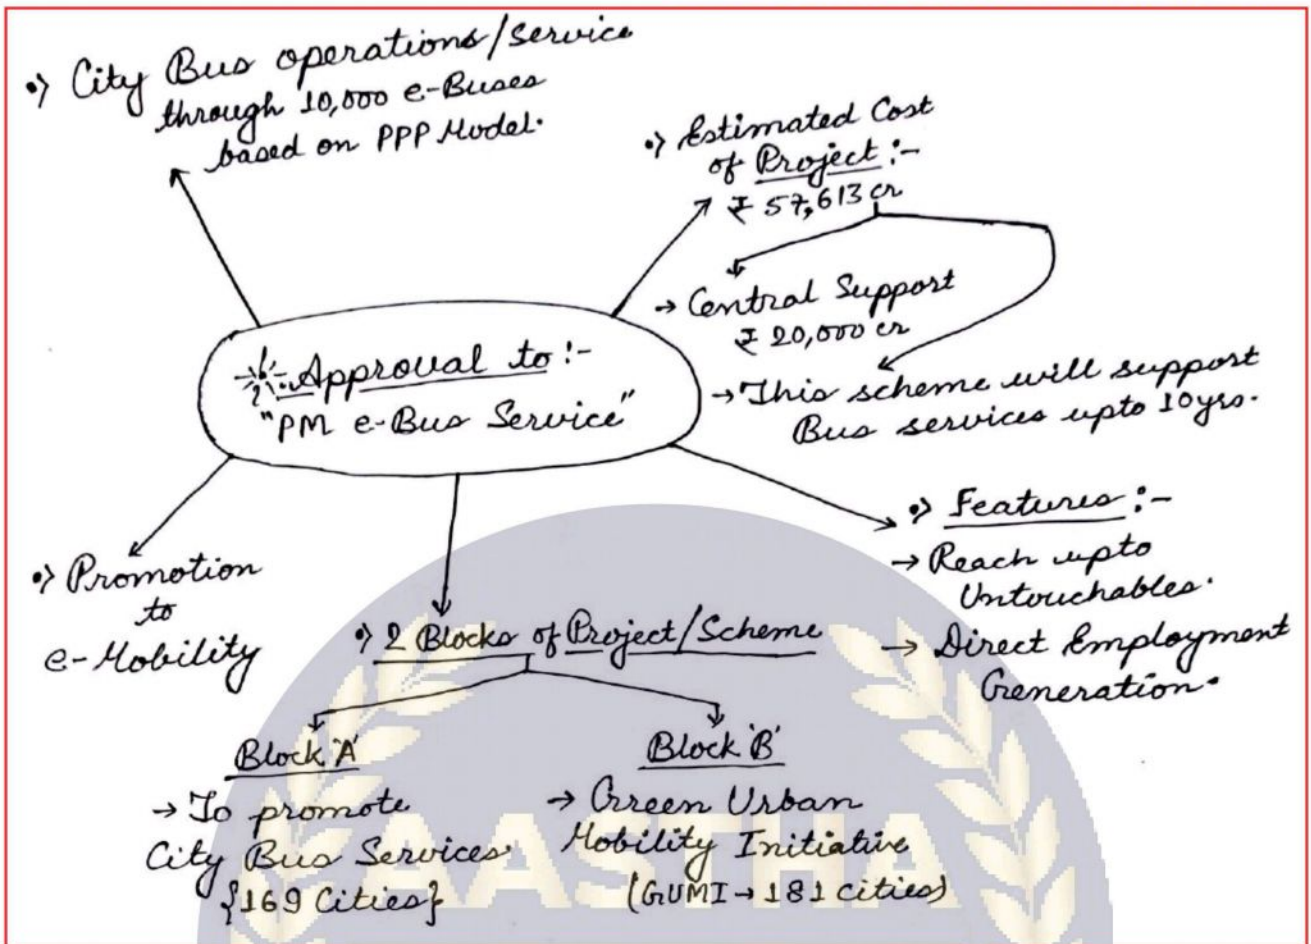 •> City Bus operations/service
through 10,000 e-Buses
based on PPP Model.
•> Estimated Cost
of Project :-
₹ 57,613 cr
→ Central Support
₹ 20,000 cr
→ This scheme will support
Bus services upto 10yrs.
Approval to :-
"PM e-Bus Service"
•> Features :-
→ Reach upto
Untouchables.
→ Direct Employment
Generation.
•> Promotion
to
e-Mobility
•> 2 Blocks of Project/Scheme
Block 'A'
→ To promote
City Bus Services
{169 Cities}
Block 'B'
→ Green Urban
Mobility Initiative
(GUMI → 181 cities)
AASTHA